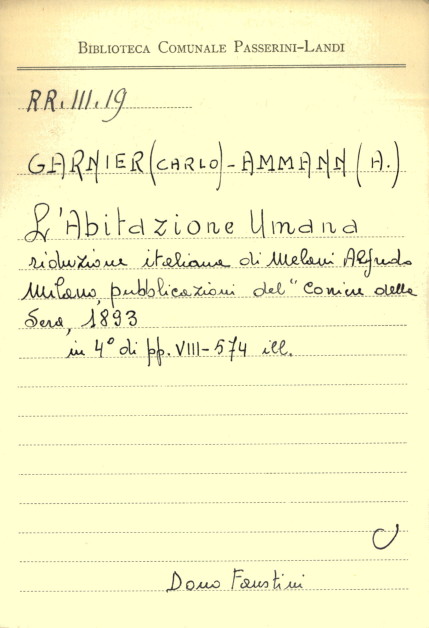 BIBLIOTECA COMUNALE PASSERINI-LANDI
RR.III.19
GARNIER (CARLO) - AMMANN (A.)
L'Abitazione Umana
riduzione italiana di Melani Alfredo
Milano, pubblicazioni del "Corriere della
Sera, 1893
in 4° di pp. VIII-574 ill.
Dono Faustini